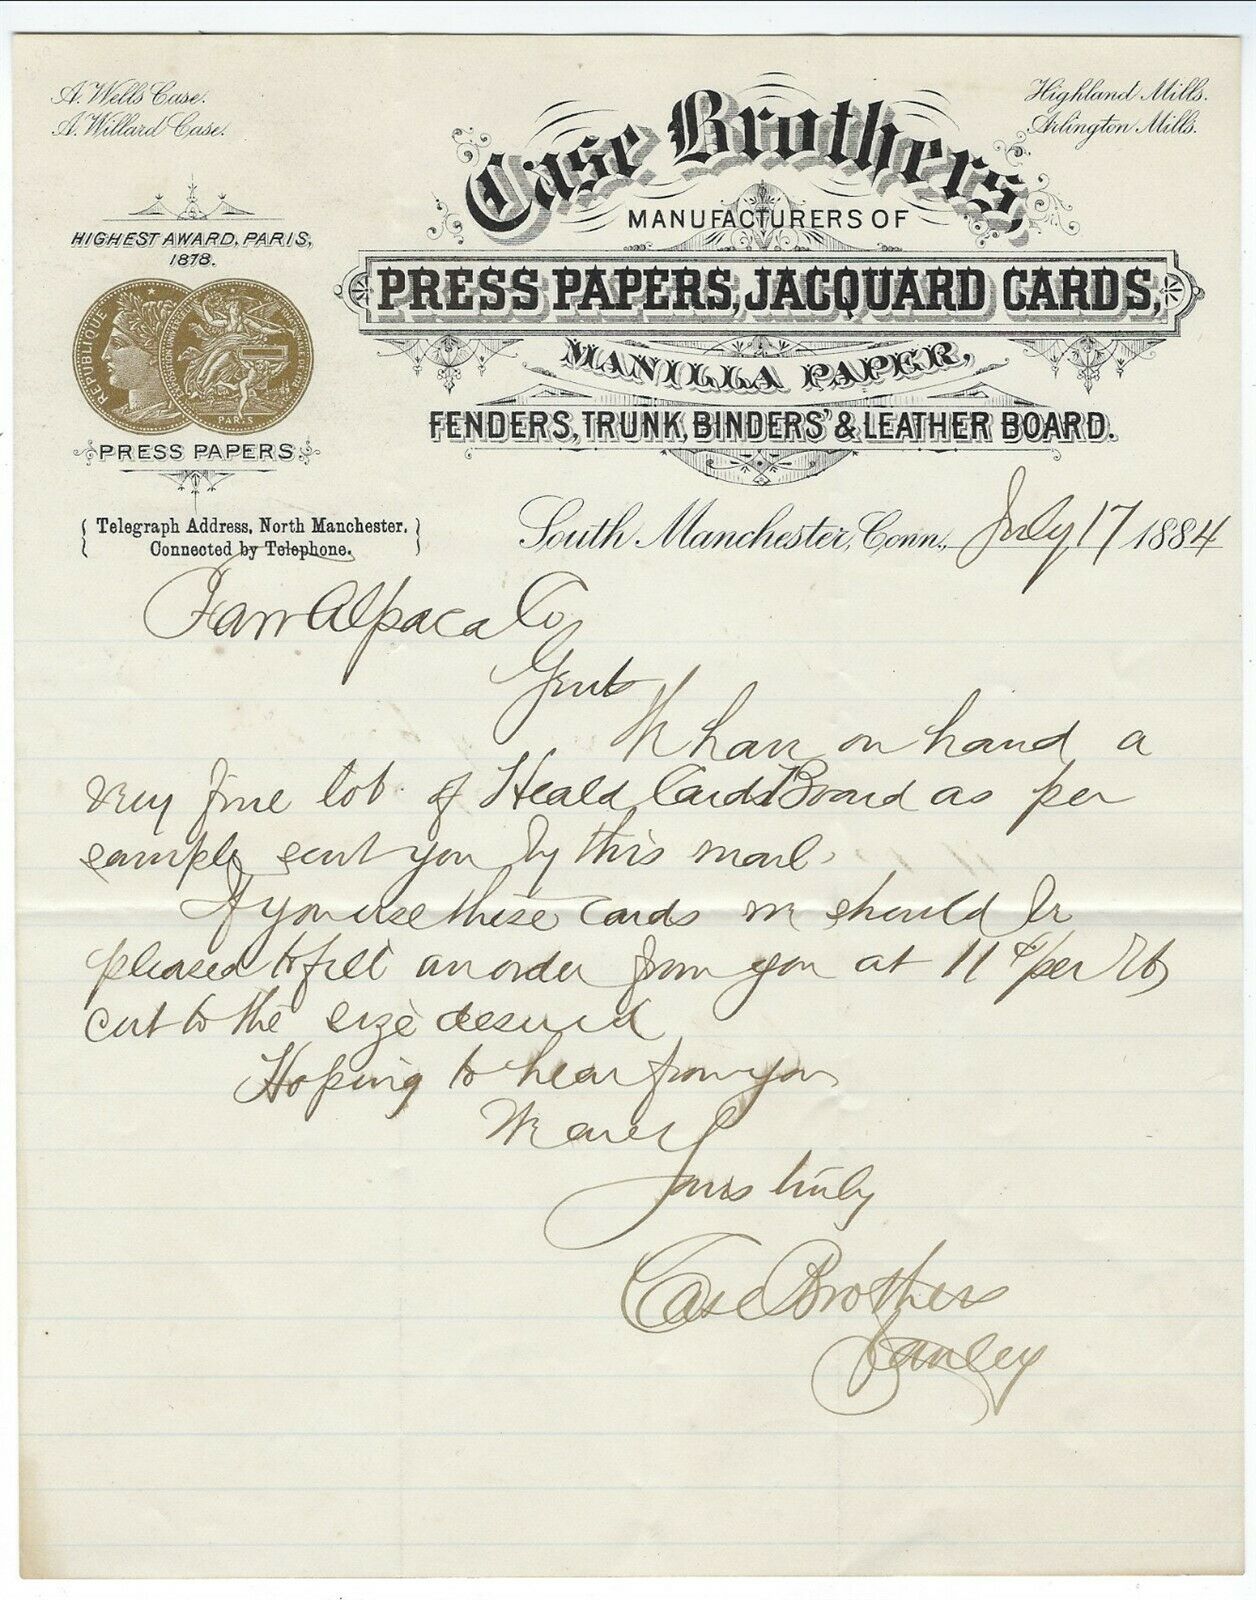 A. Wells Case.
A. Willard Case.
Highland Mills.
Arlington Mills.
Case Brothers
MANUFACTURERS OF
PRESS PAPERS, JACQUARD CARDS,
MANILLA PAPER,
FENDERS, TRUNK, BINDERS' & LEATHER BOARD.
HIGHEST AWARD, PARIS,
1878.
REPUBLIQUE
PARIS
PRESS PAPERS
Telegraph Address, North Manchester.
Connected by Telephone.
South Manchester, Conn., July 17 1884
Farr Alpaca Co,
Gents
We have on hand a
very fine lot of Heald Cards Board as per
sample sent you by this mail.
If you use these cards we should be
pleased to fill an order from you at 11¢ per lb,
cut to the size desired
Hoping to hear from you
We are
Yours truly
Case Brothers